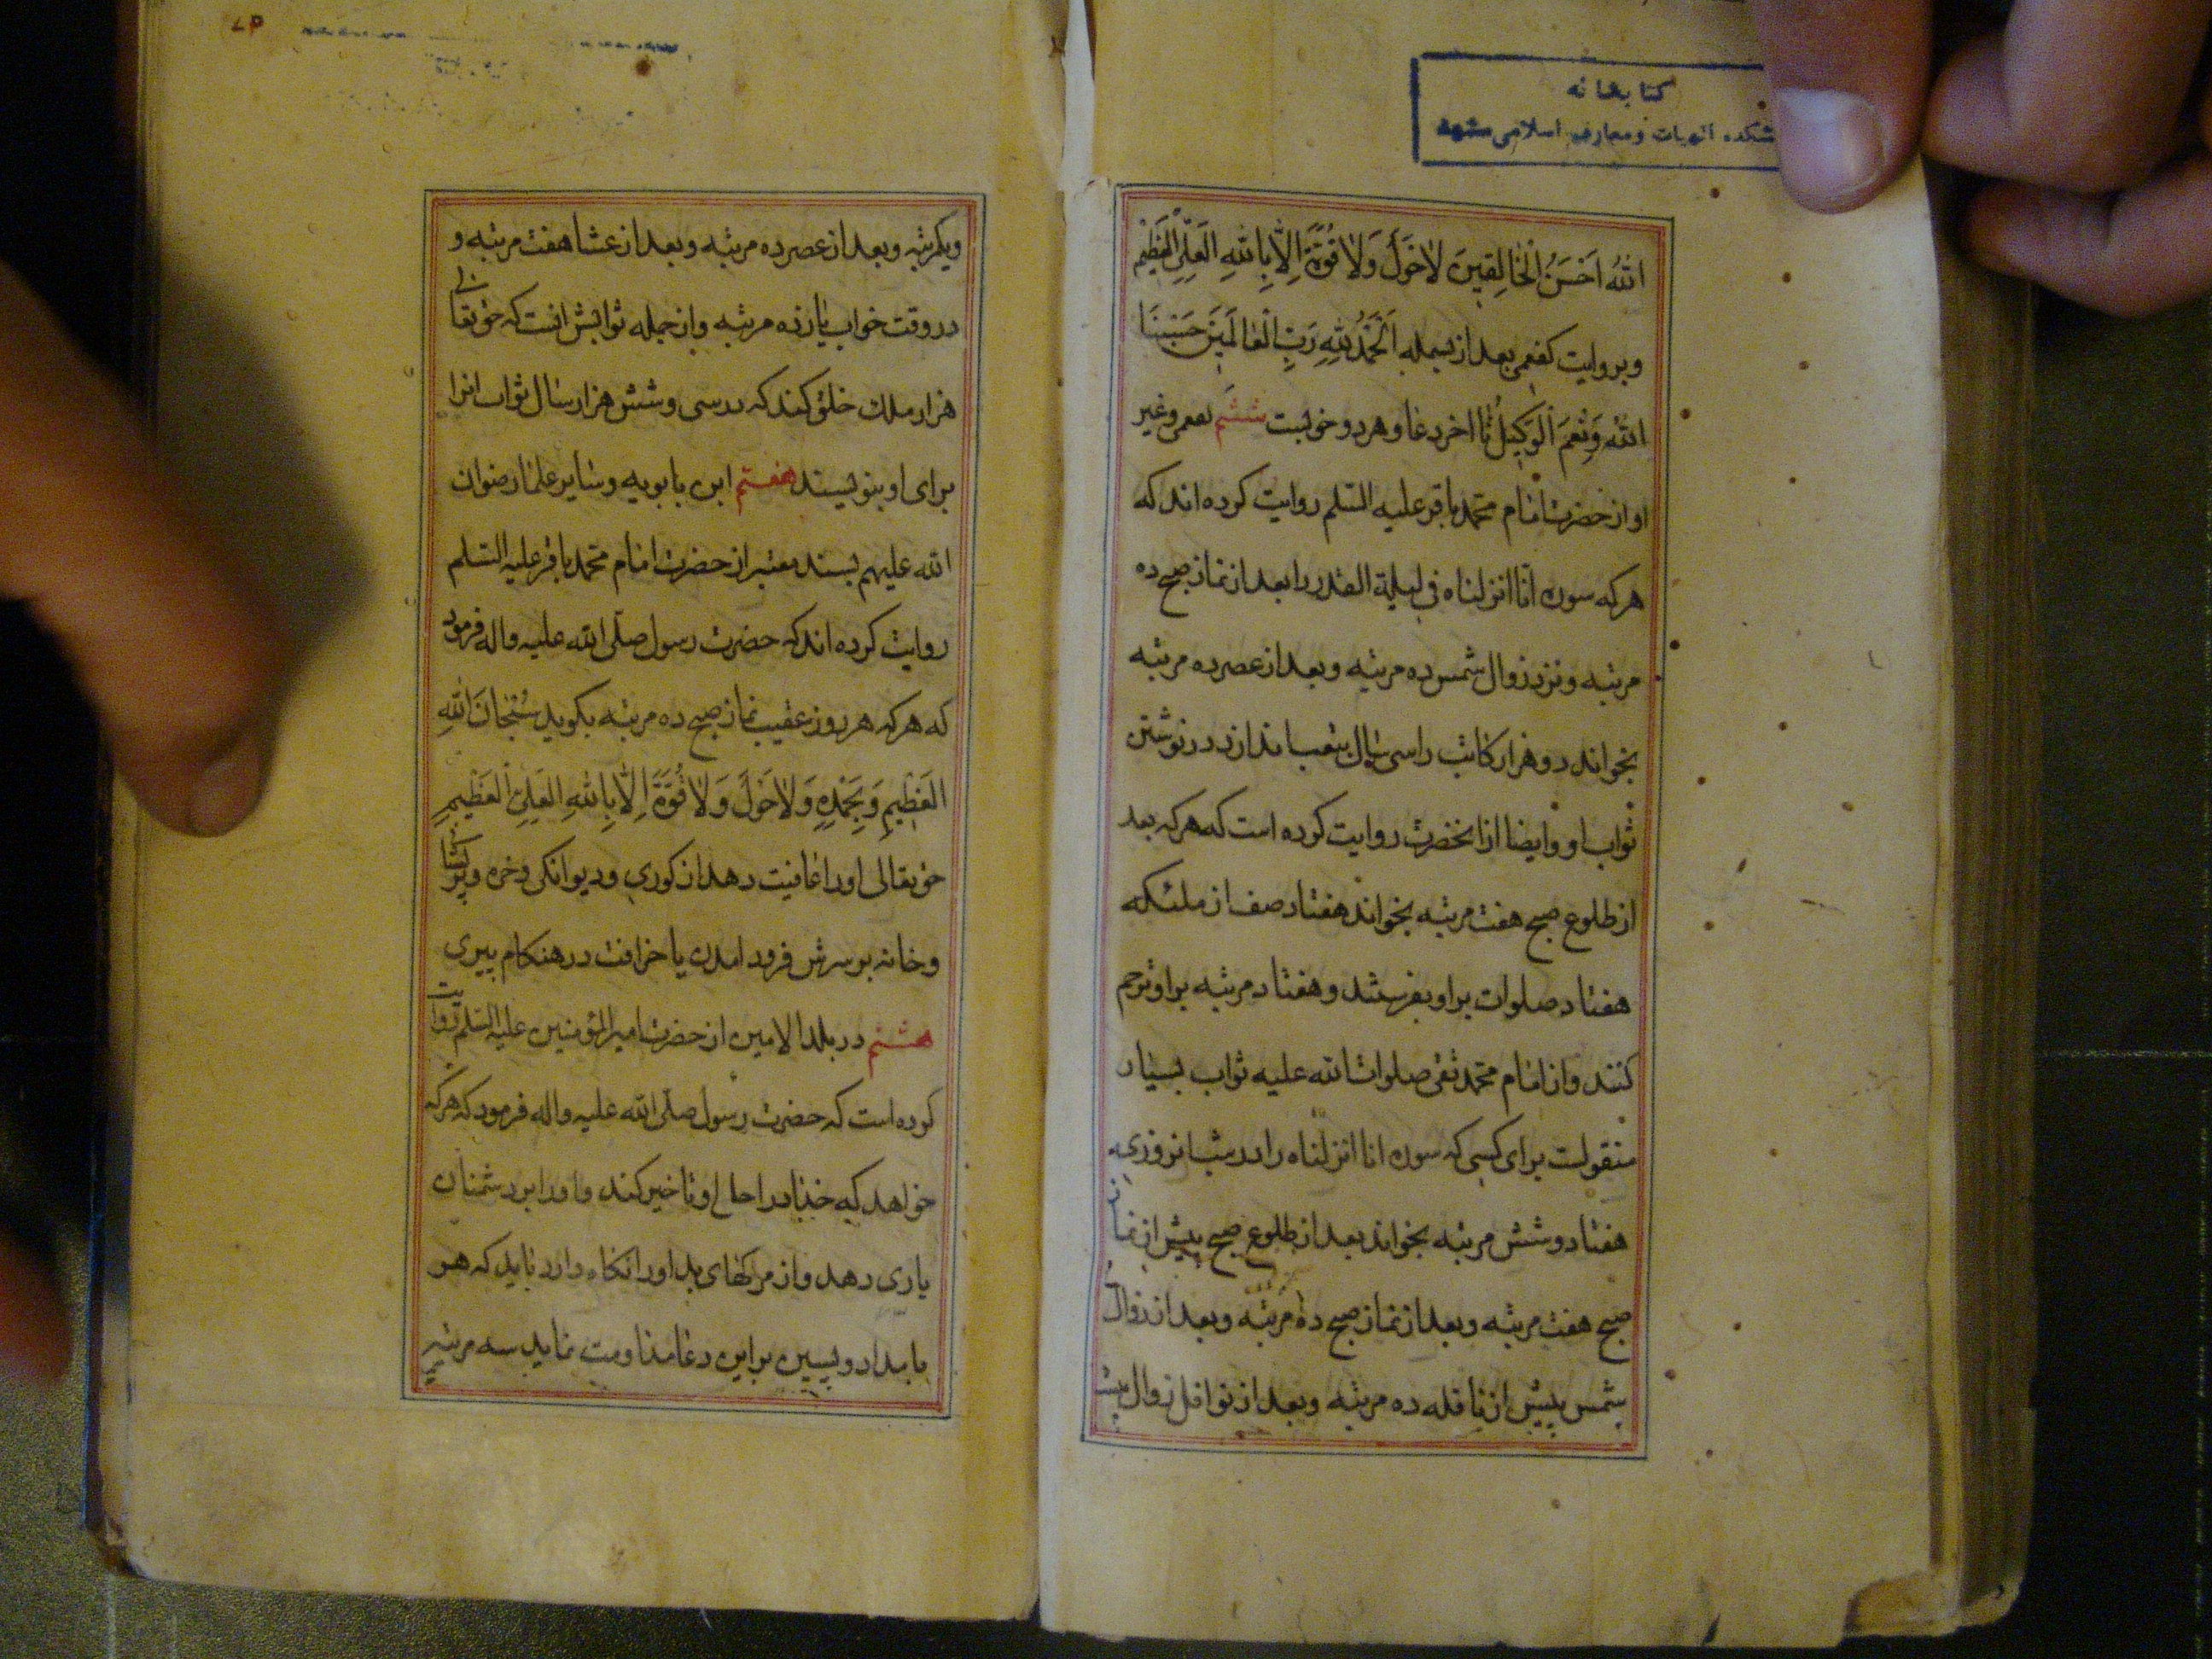 کتابخانه
شکده الهیات و معارف اسلامی مشهد
اللهُ اَحْسَنُ الْخالِقینَ لاٰحَوْلَ وَلاٰ قُوَّةَ اِلّا بِاللهِ الْعَلِیِّ الْعَظیمِ
و بروایت کفعمی بعد از بسمله اَلْحَمْدُ لِلّهِ رَبِّ الْعالَمینَ حَسْبُنَا
اللهُ وَنِعْمَ الْوَکیلُ تا اخر دعا و هر دو خوبست ششم کفعمی و غیر
او از حضرت امام محمد باقر علیه السلم روایت کرده اند که
هر که سوره انّا انزلناه فی لیلة القدر را بعد از نماز صبح ده
مرتبه و نزد زوال شمس ده مرتبه و بعد از عصر ده مرتبه
بخواند دو هزار کاتب را سی سال بتعب اندازد در نوشتن
ثواب او و ایضا از انحضرت روایت کرده است که هر که بعد
از طلوع صبح هفت مرتبه بخواند هفتاد صف از ملئکه
هفتاد صلوات بر او بفرستند و هفتاد مرتبه بر او ترحم
کنند و از امام محمد تقی صلوات الله علیه ثواب بسیار
منقولست برای کسی که سوره انا انزلناه را در شبانروزی
هفتاد و شش مرتبه بخواند بعد از طلوع صبح پیش از نماز
صبح هفت مرتبه و بعد از نماز صبح ده مرتبه و بعد از زوال
شمس پیش از نافله ده مرتبه و بعد از نوافل زوال بیست
ویکمرتبه و بعد از عصر ده مرتبه و بعد از عشا هفت مرتبه و
در وقت خواب یازده مرتبه و از جمله ثوابش انست که حق تعالی
هزار ملك خلق کند که در سی و شش هزار سال ثواب انرا
برای او بنویسند هفتم ابن بابویه و سایر علما رضوان
الله علیهم بسند معتبر از حضرت امام محمد باقر علیه السلم
روایت کرده اند که حضرت رسول صلی الله علیه واله فرمود
که هر که هر روز عقیب نماز صبح ده مرتبه بکوید سُبْحانَ اللهِ
الْعَظیمِ وَ بِحَمْدِهِ وَلاٰحَوْلَ وَلاٰ قُوَّةَ اِلّاٰ بِاللهِ الْعَلِیِّ الْعَظیمِ
حق تعالی او را عافیت دهد از کوری و دیوانکی و خره و پریشانی
و خانه بر سرش فرود امدن یا خرافت در هنکام پیری
هشتم در بلد الامین از حضرت امیر المؤمنین علیه السلم روایت
کرده است که حضرت رسول صلی الله علیه واله فرمود که هر که
خواهد که خدا در اجل او تاخیر کند و او را بر دشمنان
یاری دهد و از مرکهای بد او را نکاه دارد باید که هر
بامداد و پسین بر این دعا مداومت نماید سه مرتبه